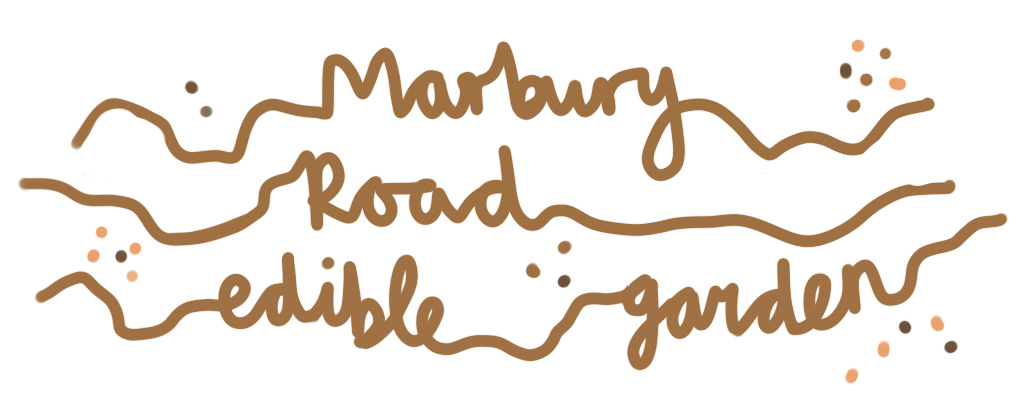 Marbury
Road
edible garden